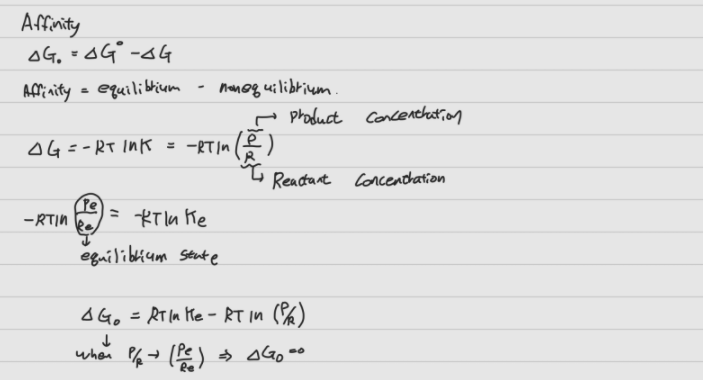 Affinity
ΔG. = ΔG° - ΔG
Affinity = equilibrium - nonequilibrium.
→ Product Concentration
ΔG = -RT ln K = -RT ln (P/R)
↳ Reactant Concentration
-RT ln (Pe/Re) = -RT ln Ke
↓
equilibrium state
ΔG₀ = RT ln Ke - RT ln (P/R)
↓
when P/R → (Pe/Re) ⇒ ΔG₀ = 0